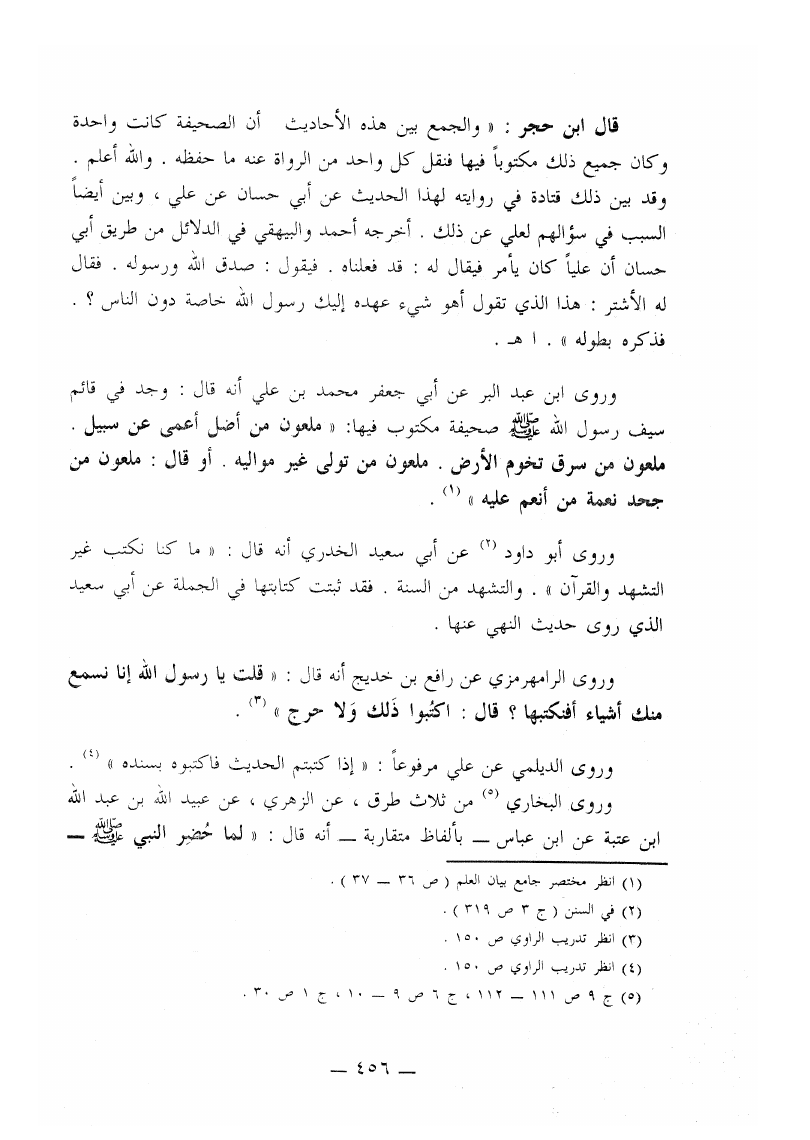 قال ابن حجر : « والجمع بين هذه الأحاديث أن الصحيفة كانت واحدة
وكان جميع ذلك مكتوباً فيها فنقل كل واحد من الرواة عنه ما حفظه . والله أعلم .
وقد بين ذلك قتادة في روايته لهذا الحديث عن أبي حسان عن علي ، وبين أيضاً
السبب في سؤالهم لعلي عن ذلك . أخرجه أحمد والبيهقي في الدلائل من طريق أبي
حسان أن علياً كان يأمر فيقال له : قد فعلناه . فيقول : صدق الله ورسوله . فقال
له الأشتر : هذا الذي تقول أهو شيء عهده إليك رسول الله خاصة دون الناس ؟ .
فذكره بطوله » . ا هـ .
وروى ابن عبد البر عن أبي جعفر محمد بن علي أنه قال : وجد في قائم
سيف رسول الله ﷺ صحيفة مكتوب فيها: « ملعون من أضل أعمى عن سبيل .
ملعون من سرق تخوم الأرض . ملعون من تولى غير مواليه . أو قال : ملعون من
جحد نعمة من أنعم عليه » (١) .
وروى أبو داود (٢) عن أبي سعيد الخدري أنه قال : « ما كنا نكتب غير
التشهد والقرآن » . والتشهد من السنة . فقد ثبتت كتابتها في الجملة عن أبي سعيد
الذي روى حديث النهي عنها .
وروى الرامهرمزي عن رافع بن خديج أنه قال : « قلت يا رسول الله إنا نسمع
منك أشياء أفنكتبها ؟ قال : اكتُبوا ذَلك وَلا حرج » (٣) .
وروى الديلمي عن علي مرفوعاً : « إذا كتبتم الحديث فاكتبوه بسنده » (٤) .
وروى البخاري (٥) من ثلاث طرق ، عن الزهري ، عن عبيد الله بن عبد الله
ابن عتبة عن ابن عباس — بألفاظ متقاربة — أنه قال : « لما حُضِر النبي ﷺ —
(١) انظر مختصر جامع بيان العلم ( ص ٣٦ — ٣٧ ) .
(٢) في السنن ( ج ٣ ص ٣١٩ ) .
(٣) انظر تدريب الراوي ص ١٥٠ .
(٤) انظر تدريب الراوي ص ١٥٠ .
(٥) ج ٩ ص ١١١ — ١١٢ ، ج ٦ ص ٩ — ١٠ ، ج ١ ص ٣٠ .
— ٤٥٦ —